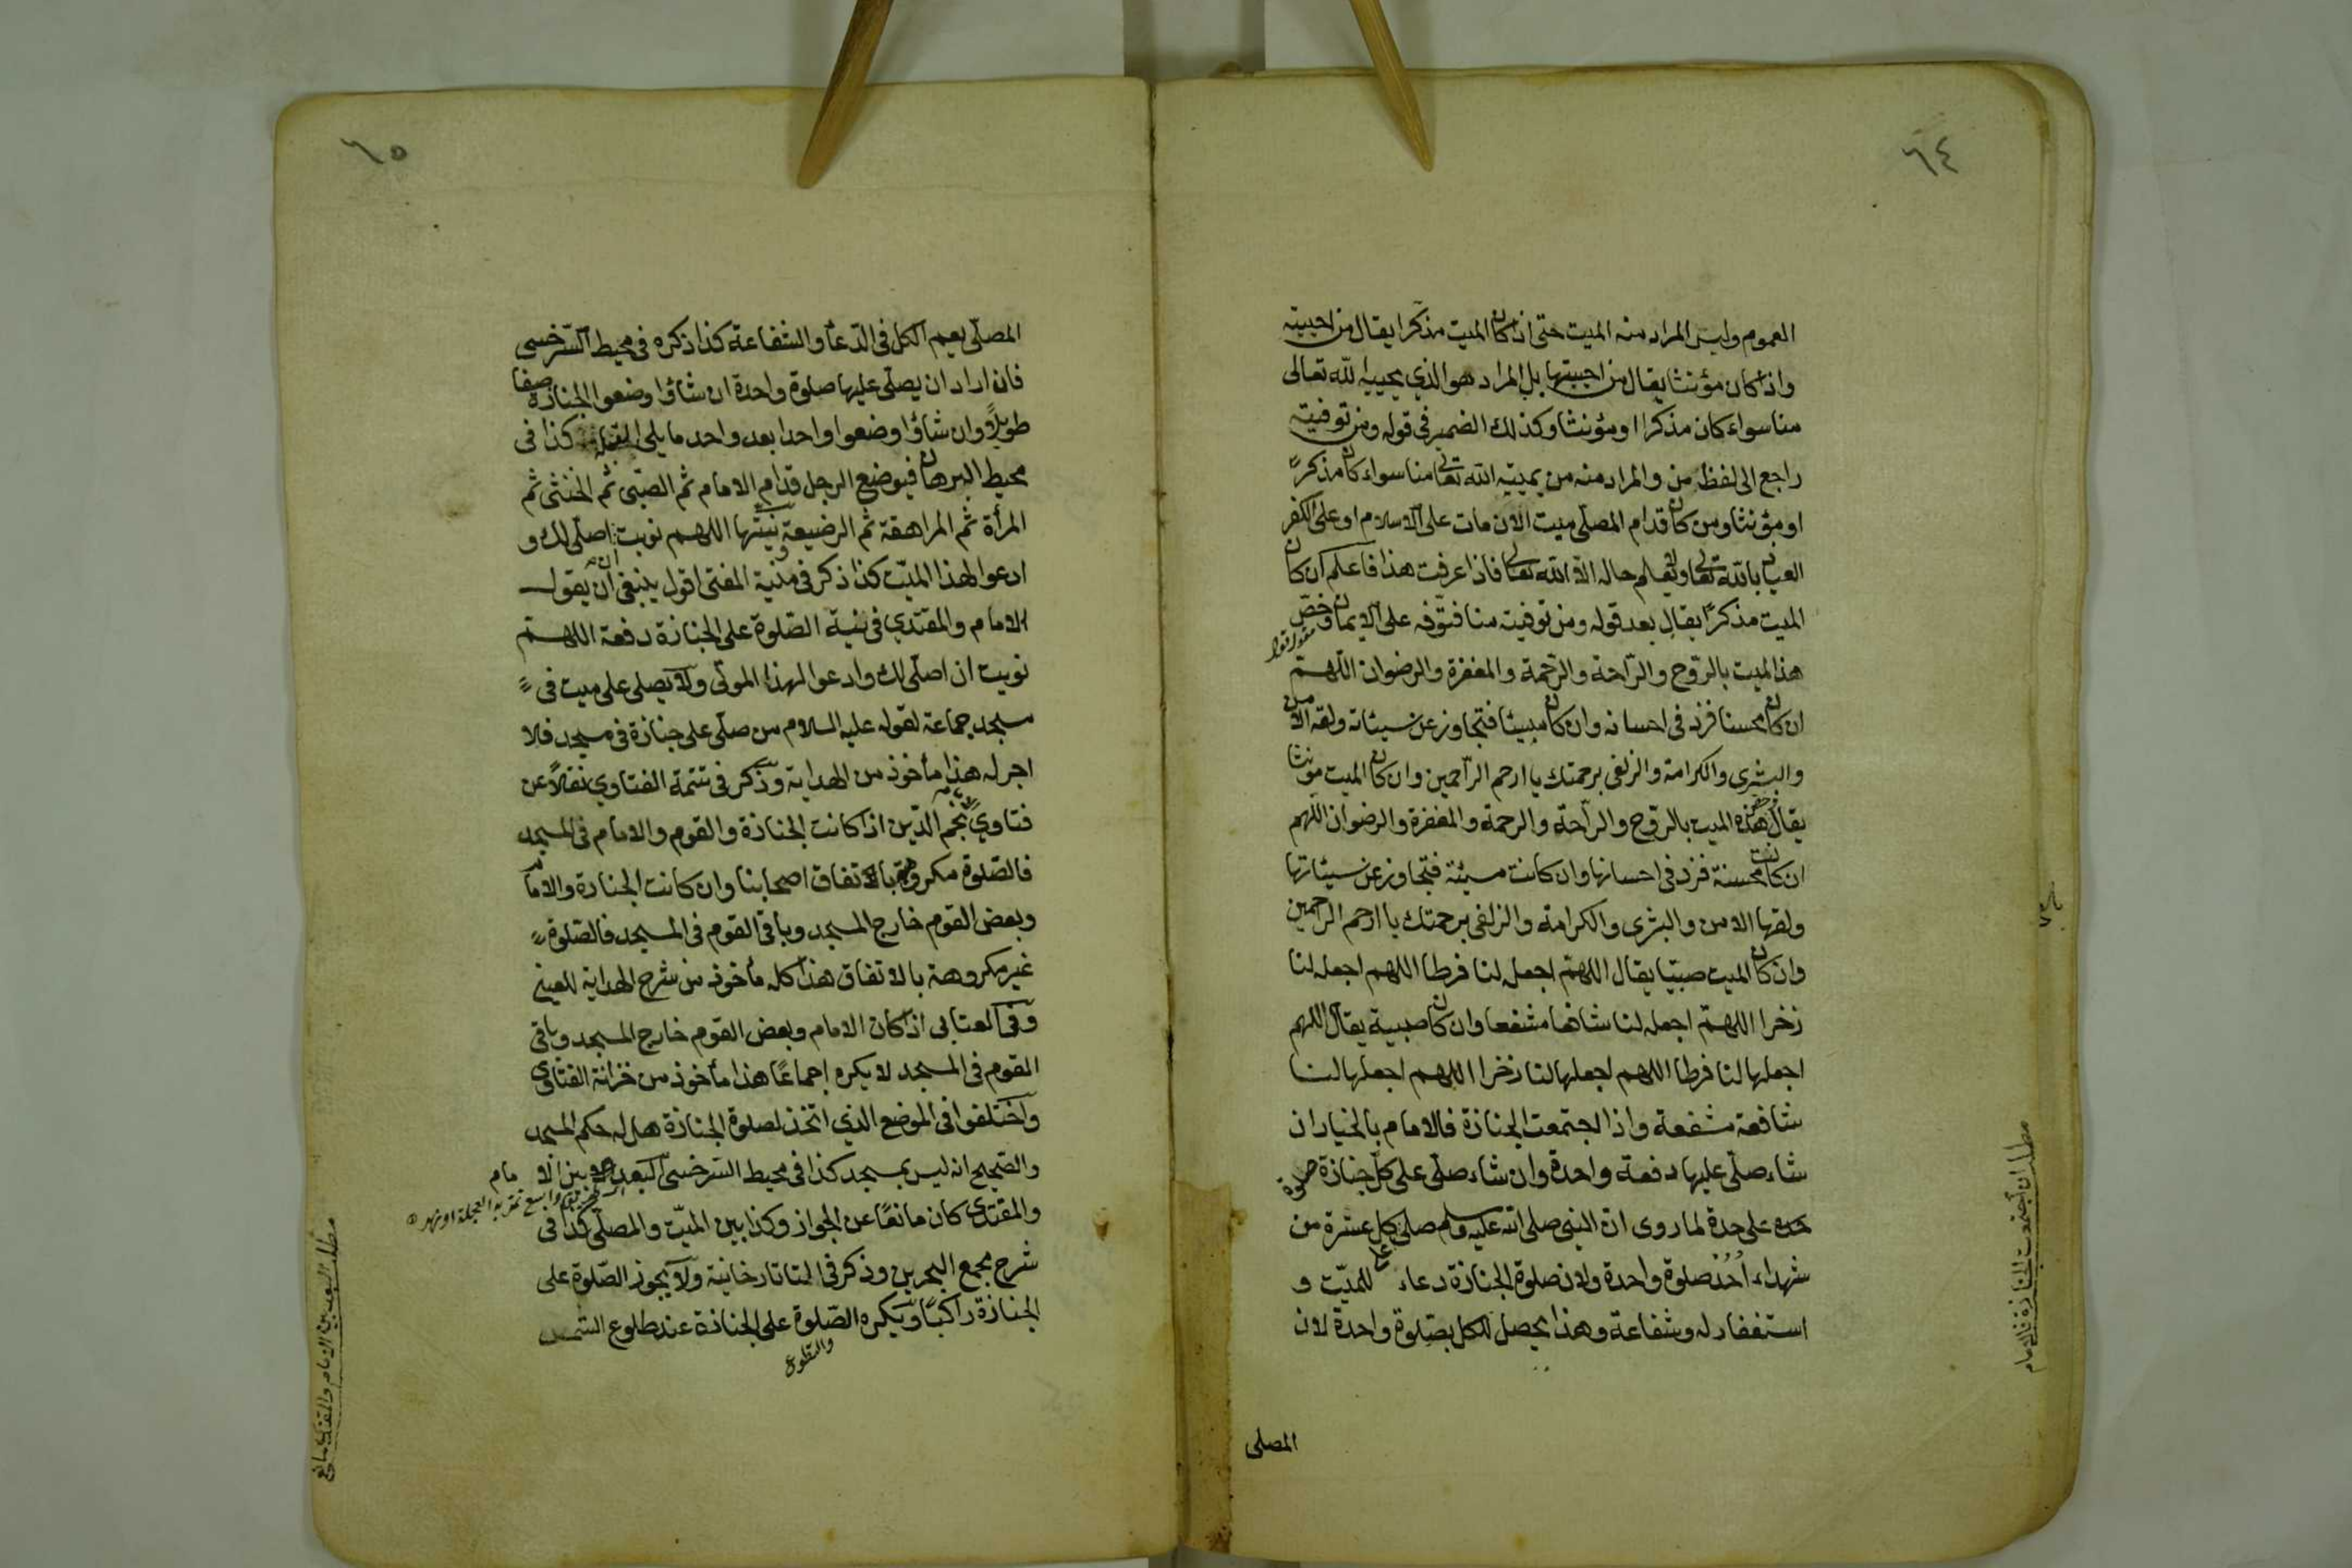 ٦٤
العموم وليس المراد منه الميت حتى اذا كان الميت مذكرا يقال من احييته
واذا كان مؤنثا يقال من احييتها بل المراد هو الذي يحييه الله تعالى
منا سواء كان مذكرا او مؤنثا وكذلك الضمير في قوله ومن توفيته
راجع الى لفظ من والمراد منه من يميته الله تعالى منا سواء كان مذكرا
او مؤنثا ومن كان قدام المصلى ميت الآن مات على الاسلام او على الكفر
العياذ بالله تعالى ولا يعلم حاله الا الله تعالى فاذا عرفت هذا فاعلم ان كان
الميت مذكرا يقال بعد قوله ومن توفيته منا فتوفه على الايمان وخص
هذا الميت بالروح والراحة والرحمة والمغفرة والرضوان اللهم
ان كان محسنا فزد في احسانه وان كان مسيئا فتجاوز عن سيئاته ولقه الامن
والبشرى والكرامة والزلفى برحمتك يا ارحم الراحمين وان كان الميت مونثا
يقال وخص هذه الميت بالروح والراحة والرحمة والمغفرة والرضوان اللهم
ان كانت محسنة فزد في احسانها وان كانت مسيئة فتجاوز عن سيئاتها
ولقها الامن والبشرى والكرامة والزلفى برحمتك يا ارحم الراحمين
وان كان الميت صبيا يقال اللهم اجعله لنا فرطا اللهم اجعله لنا
زخرا اللهم اجعله لنا شافعا مشفعا وان كان صبية يقال اللهم
اجعلها لنا فرطا اللهم اجعلها لنا زخرا اللهم اجعلها لنا
شافعة مشفعة واذا اجتمعت الجنازة فالامام بالخيار ان
شاء صلى عليها دفعة واحدة وان شاء صلى على كل جنازة صلوة
على حدة لما روى ان النبى صلى الله عليه وسلم صلى كل عشرة من
شهداء اُحُد صلوة واحدة ولان صلوة الجنازة دعاء للميت و
استغفار له وشفاعة وهذا يحصل للكل بصلوة واحدة لان
المصلى
مطلب ان اجتمعت الجنازة فالامام
٦٥
المصلى يعم الكل فى الدعاء والشفاعة كذا ذكره فى محيط السرخسى
فان اراد ان يصلى عليها صلوة واحدة ان شاؤا وضعوا الجنازة صفا
طويلا وان شاؤا وضعوا واحدا بعد واحد مما يلى القبلة كذا فى
محيط البرهان فيوضع الرجل قدام الامام ثم الصبى ثم الخنثى ثم
المرأة ثم المراهقة ثم الرضيعة ونيتها اللهم نويت ان اصلى لك و
ادعوا لهذا الميت كذا ذكر فى منية المفتى اقول ينبغى ان يقول
الامام والمقتدي فى نية الصلوة على الجنازة دفعة اللهم
نويت ان اصلى لك وادعوا لهذا الموتى ولا يصلى على ميت فى
مسجد جماعة لقوله عليه السلام من صلى على جنازة فى مسجد فلا
اجر له هذا مأخوذ من الهداية وذكر فى تتمة الفتاوي نقلا عن
فتاوي نجم الدين اذا كانت الجنازة والقوم والامام فى المسجد
فالصلوة مكروهة بالاتفاق اصحابنا وان كانت الجنازة والامام
وبعض القوم خارج المسجد وباقى القوم فى المسجد فالصلوة
غير مكروهة بالاتفاق هذا كله مأخوذ من شرح الهداية للعينى
وفى العتابى اذا كان الامام وبعض القوم خارج المسجد وباقى
القوم فى المسجد لا يكره اجماعا هذا مأخوذ من خزانة الفتاوى
واختلفوا فى الموضع الذي اتخذ لصلوة الجنازة هل له حكم المسجد
والصحيح انه ليس بمسجد كذا فى محيط السرخسى البعد بين الامام
والمقتدى كان مانعا عن الجواز وكذا بين الميت والمصلى كذا فى
شرح مجمع البحرين وذكر فى التاتارخانية ولا يجوز الصلوة على
الجنازة راكبا ويكره الصلوة على الجنازة عند طلوع الشمس
مطلب البعد بين الامام والمقتدى مانع